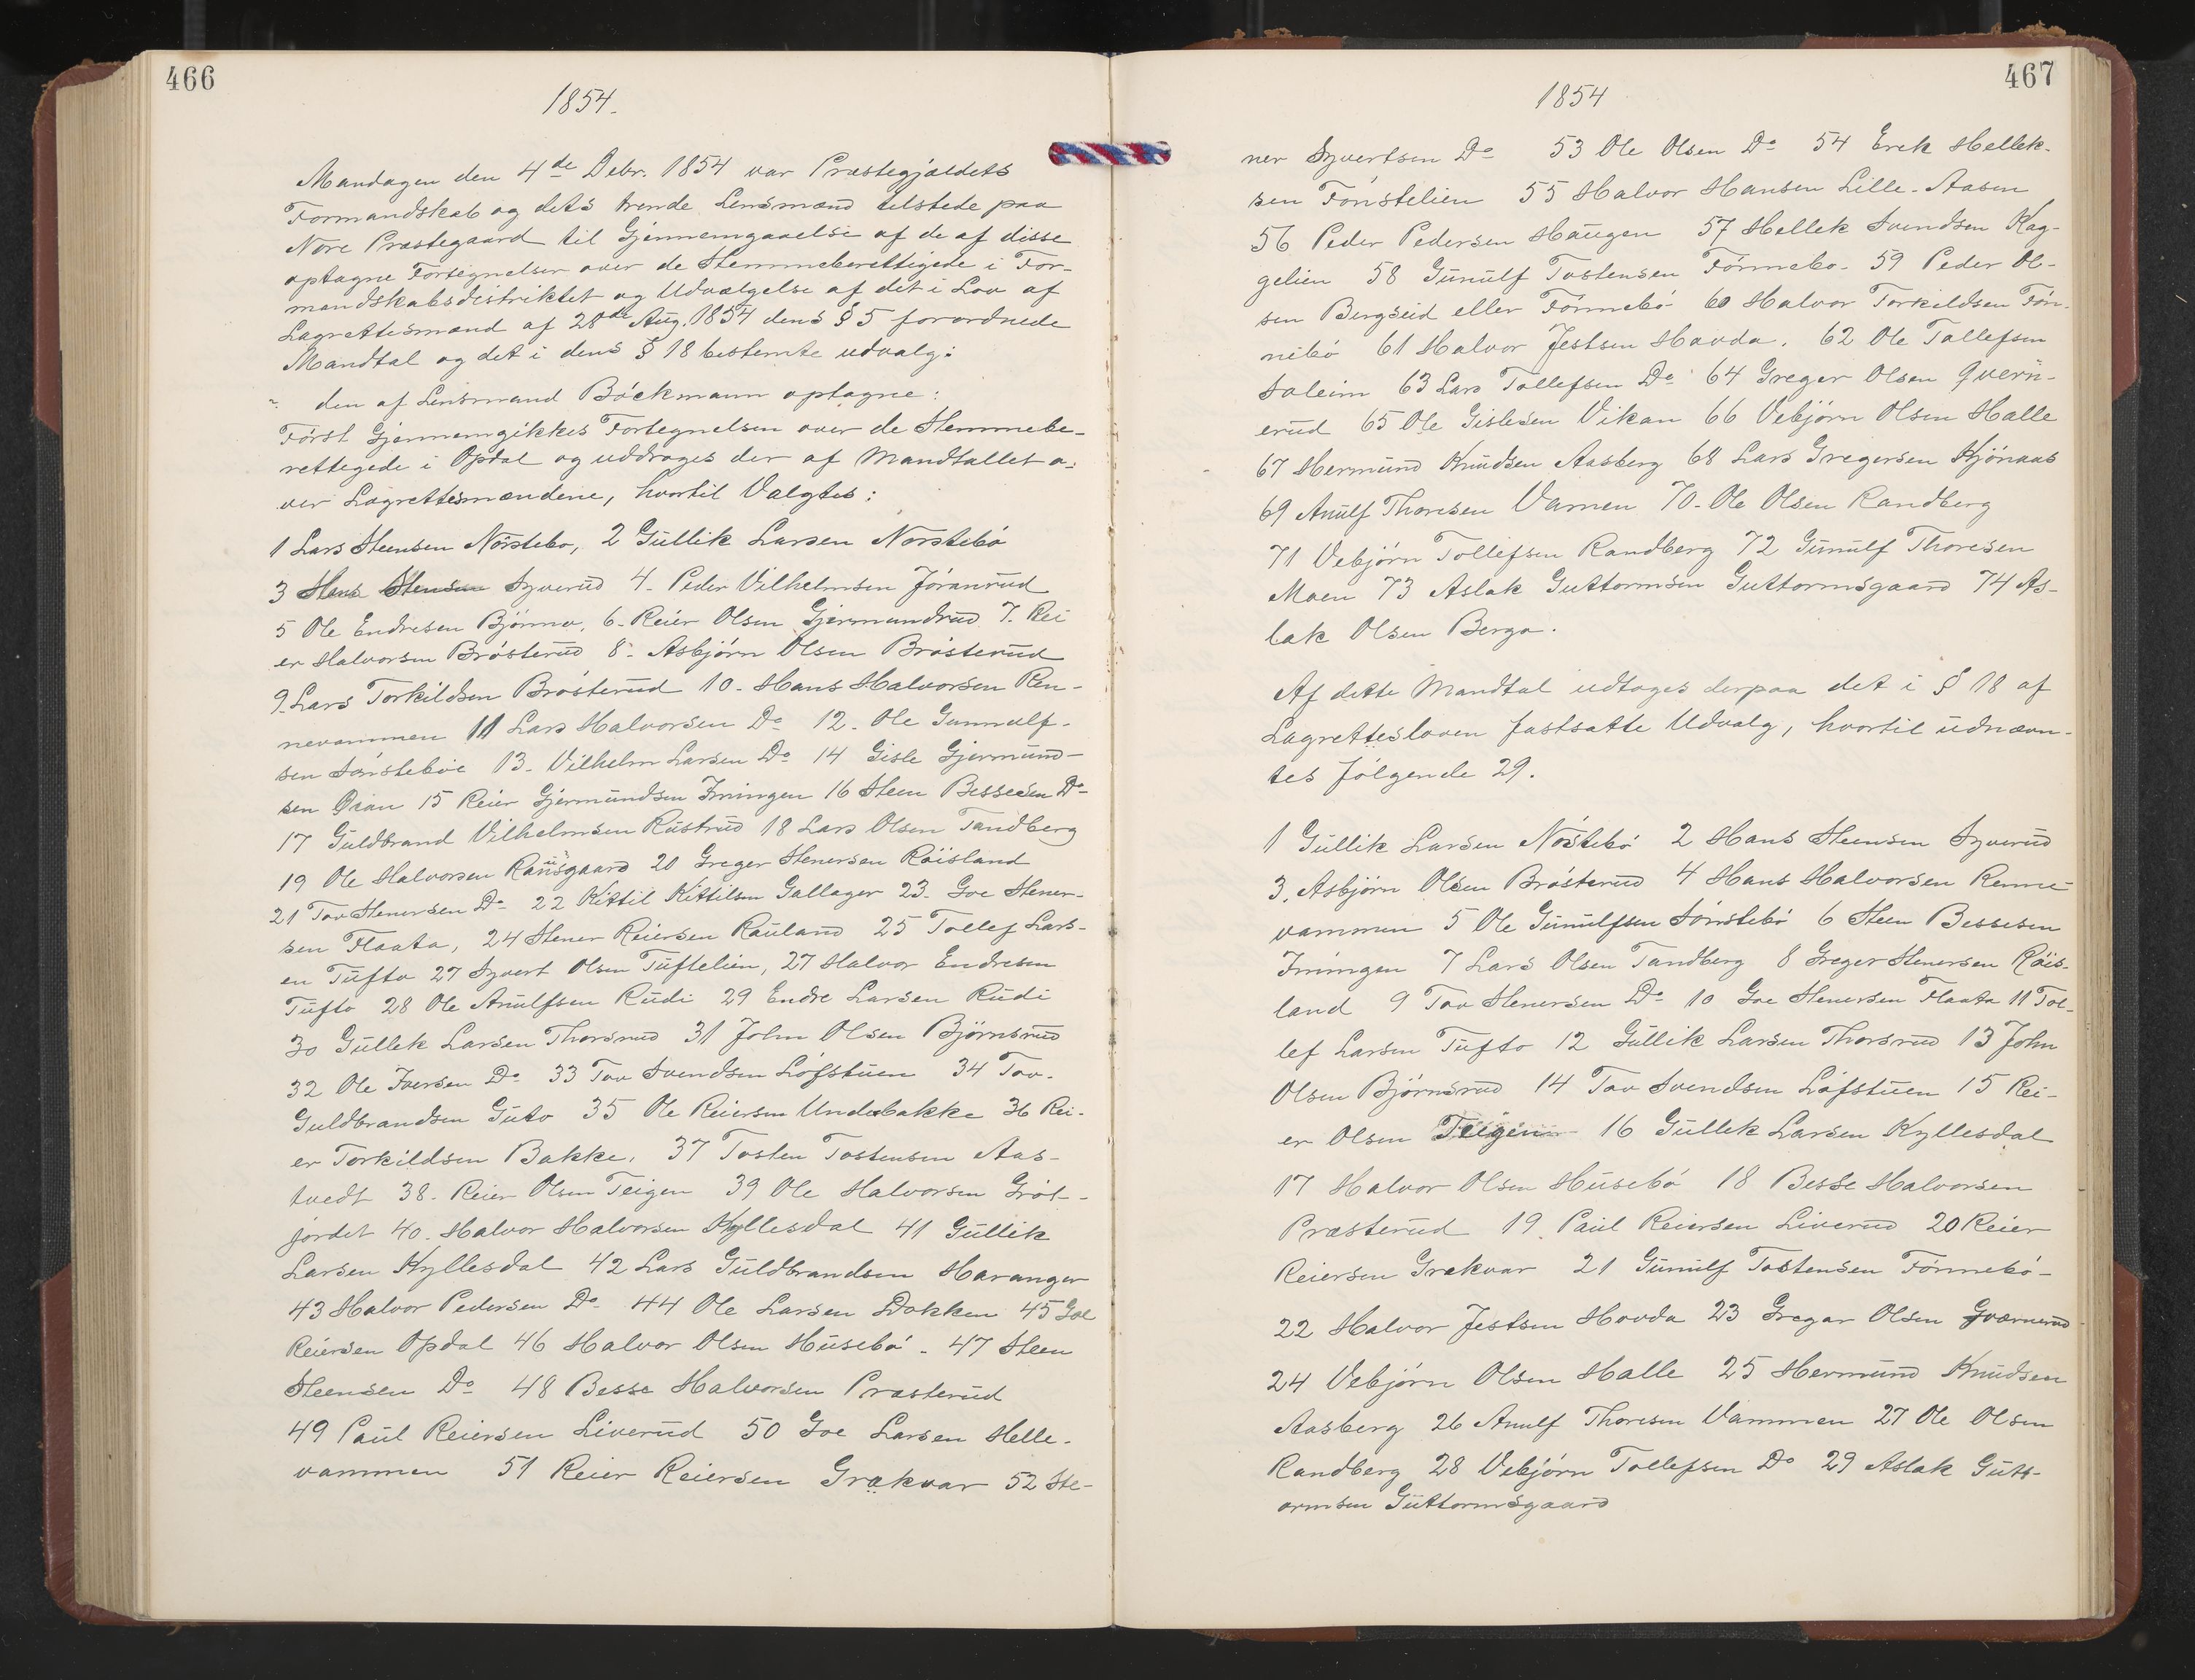 466
1854.
Mandagen den 4de Debr. 1854 var Præstegjældets
Formandskab og dets trende Lensmænd tilstede paa
Nore Præstegaard til Gjennemgaaelse af de af disse
optagne Fortegnelser over de Stemmeberettigede i For-
mandskabsdistriktet og Udvælgelse af det i Lov af
Lagrettesmænd af 28de Aug. 1854 dens § 5 forordnede
Mandtal og det i dens § 18 bestemte udvalg:
den af Lensmand Böckmann optagne:
Först Gjennemgikkes Fortegnelsen over de Stemmebe-
rettegede i Opdal og uddroges der af Mandtallet o-
ver Lagrettesmændene, hvortil Valgtes:
1 Lars Steensen Nörstebo, 2 Gullik Larsen Norstebö
3 Hans Stensen Syverud 4. Peder Vilhelmsen Jöranrud
5 Ole Endresen Björnno, 6. Reier Olsen Gjermundrud 7. Rei
er Halvorsen Brösterud 8. Asbjörn Olsen Brösterud
9. Lars Torkildsen Brösterud 10. Hans Halvorsen Ren-
nevammen 11 Lars Halvorsen Do 12. Ole Gunnulf-
sen Sönsteböe 13. Vilhelm Larsen Do 14 Gisle Gjermund-
sen Öian 15 Reier Gjermundsen Imingen 16 Steen Bessesen Do
17 Guldbrand Vilhelmsen Rustrud 18 Lars Olsen Tandberg
19 Ole Halvorsen Raunsgaard 20 Greger Stenersen Röisland
21 Tov Stenersen Do 22 Kittil Kittilsen Gallager 23. Goe Stener-
sen Flaata, 24 Stener Reiersen Rauland 25 Tollef Lars-
en Tufto 27 Syvert Olsen Tuftelien, 27 Halvor Endresen
Tufto 28 Ole Anulfsen Rudi 29 Endre Larsen Rudi
30 Gullek Larsen Thorsrud 31 John Olsen Björnsrud
32 Ole Iversen Do 33 Tov Svendsen Löfstuen 34 Tov.
Guldbrandsen Guto 35 Ole Reiersen Underbakke 36 Rei-
er Torkildsen Bakke, 37 Tosten Tostensen Aas-
tvedt 38. Reier Olsen Teigen 39 Ole Halvorsen Gröt-
jordet 40. Halvor Halvorsen Kyllesdal 41 Gullik
Larsen Kyllesdal 42 Lars Guldbrandsen Haranger
43 Halvor Pedersen Do 44 Ole Larsen Dokken 45 Goe
Reiersen Opdal 46 Halvor Olsen Husebö. 47 Steen
Steensen Do 48 Besse Halvorsen Præsterud
49 Paul Reiersen Liverud 50 Goe Larsen Helle-
vammen 51 Reier Reiersen Grækvar 52 Ste-
467
1854
ner Syvertsen Do 53 Ole Olsen Do 54 Erek Hellek-
sen Fönstelien 55 Halvor Hansen Lille-Aasen
56 Peder Pedersen Haugen 57 Hellek Svendsen Kag-
gelien 58 Gunulf Tostensen Fönnebo. 59 Peder Ol-
sen Bergseid eller Fönnebö 60 Halvor Torkildsen Fön-
nebö 61 Halvor Jestsen Hovda. 62 Ole Tollefsen
Soleim 63 Lars Tollefsen Do 64 Greger Olsen Qvern-
erud 65 Ole Gislesen Vikan 66 Vebjörn Olsen Halle
67 Hermund Knudsen Aasberg 68 Lars Gregersen Kjönaas
69 Anulf Thoresen Vamen 70. Ole Olsen Randberg
71 Vebjörn Tollefsen Randberg 72 Gunulf Thoresen
Moen 73 Aslak Guttormsen Guttormsgaard 74 As-
lak Olsen Bergo.
Af dette Mandtal udtoges derpaa det i § 18 af
Lagrettesloven fastsatte Udvalg, hvortil udnævn-
tes fölgende 29.
1 Gullik Larsen Nöstebö 2 Hans Steensen Syverud
3. Asbjörn Olsen Brösterud 4 Hans Halvorsen Renne-
vammen 5 Ole Gunulfsen Sönstebö 6 Steen Bessesen
Imingen 7 Lars Olsen Tandberg 8 Greger Stenersen Röis-
land 9 Tov Stenersen Do 10 Goe Stenersen Flaata 11 Tol-
lef Larsen Tufto 12 Gullik Larsen Thorsrud 13 John
Olsen Björnsrud 14 Tov Svendsen Löfstuen 15 Rei-
er Olsen Teigen 16 Gullek Larsen Kyllesdal
17 Halvor Olsen Husebö 18 Besse Halvorsen
Præsterud 19. Paul Reiersen Liverud 20 Reier
Reiersen Grækvar 21 Gunulf Tostensen Fönnebö-
22 Halvor Jestsen Hovda 23 Gregar Olsen Qværnerud
24 Vebjörn Olsen Halle 25 Hermund Knudsen
Aasberg 26 Anulf Thoresen Vammen 27 Ole Olsen
Randberg 28 Vebjörn Tollefsen Do 29 Aslak Gutt-
ormsen Guttormsgaard